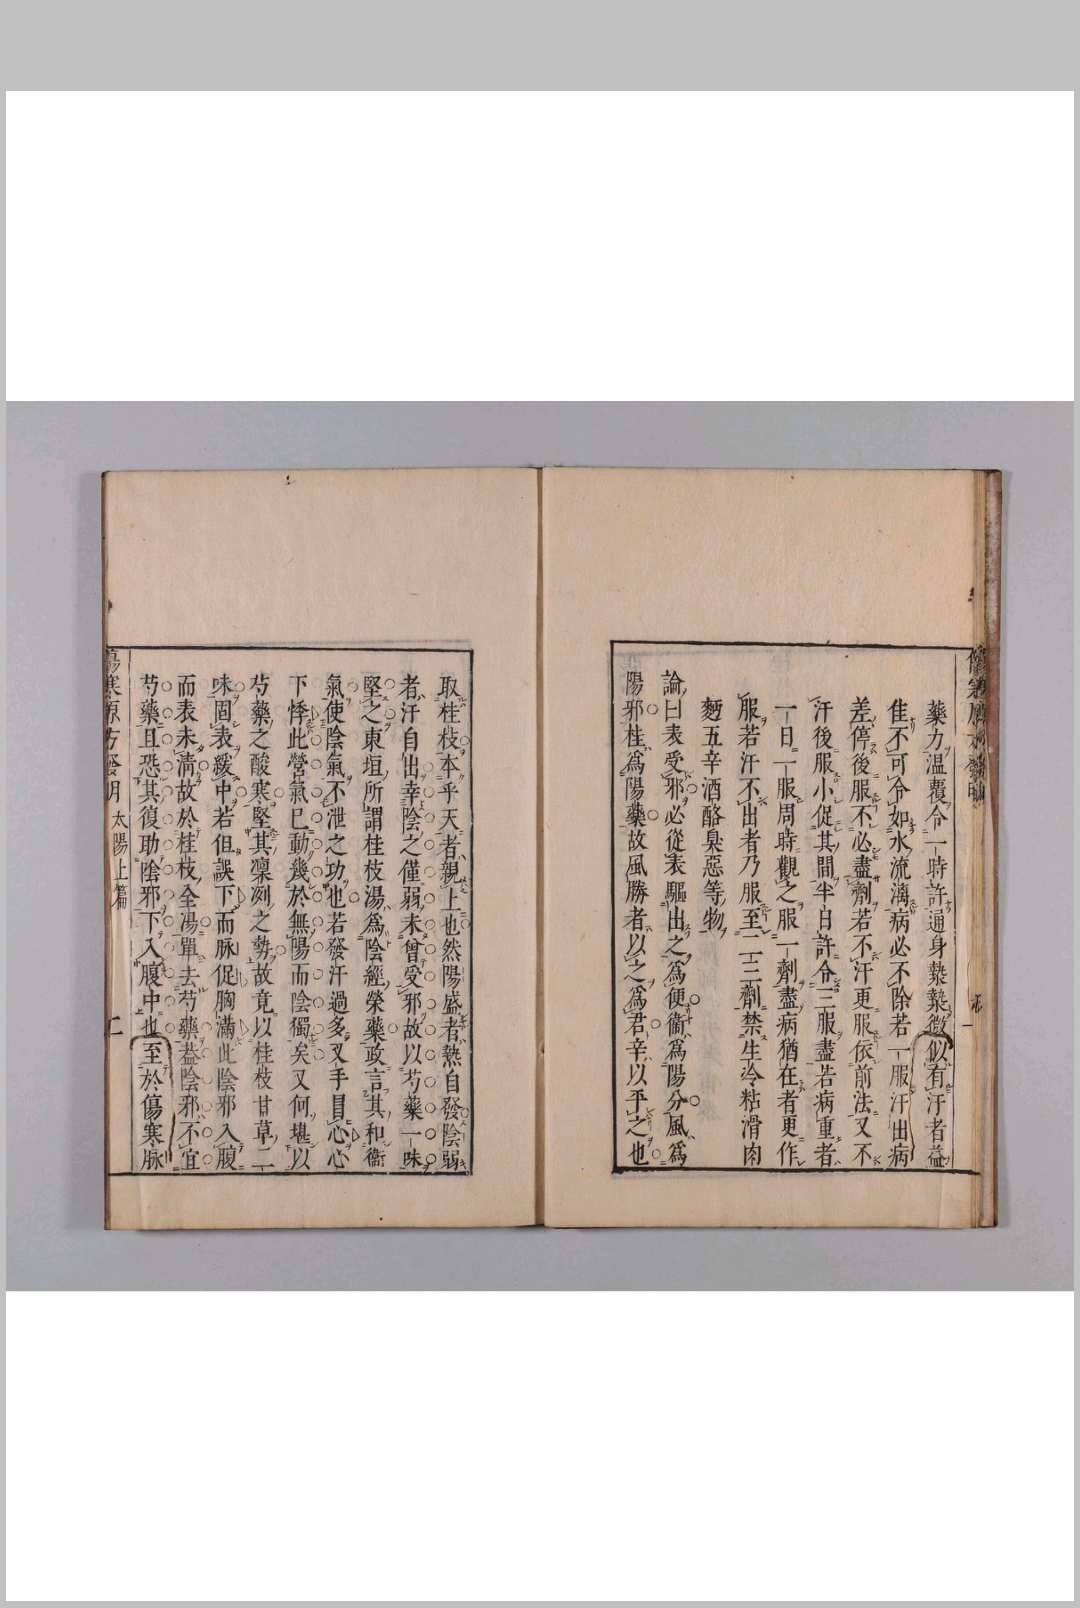 藥力温覆令一時許通身漐漐微似有汗者益
佳不可令如水流漓病必不除若一服汗出病
差停後服不必盡劑若不汗更服依前法又不
汗後服小促其間半日許令三服盡若病重者
一日一服周時觀之服一劑盡病猶在者更作
服若汗不出者乃服至二三劑禁生冷粘滑肉
麪五辛酒酪臭惡等物
論曰表受邪必從表驅出之爲便衞爲陽分風爲
陽邪桂爲陽藥故風勝者以之爲君辛以平之也
取桂枝本乎天者親上也然陽盛者熱自發陰弱
者汗自出幸陰之僅弱未曾受邪故以芍藥一味
堅之東垣所謂桂枝湯爲陰經榮藥政言其和衞
氣使陰氣不泄之功也若發汗過多叉手冒心心
下悸此營氣已動幾於無陽而陰獨矣又何堪以
芍藥之酸寒堅其凛冽之勢故竟以桂枝甘草二
味固表緩中若但誤下而脉促胸滿此陰邪入腹
而表未清故於桂枝全湯單去芍藥葢陰邪不宜
芍藥且恐其復助陰邪下入腹中也至於傷寒脉
傷寒原方發明 太陽上篇 二